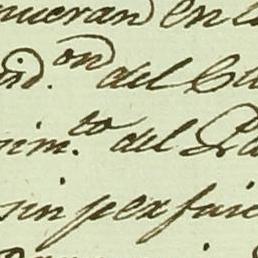 nueran en l
id.on del Cu
im.to del Ra
sin perjuic